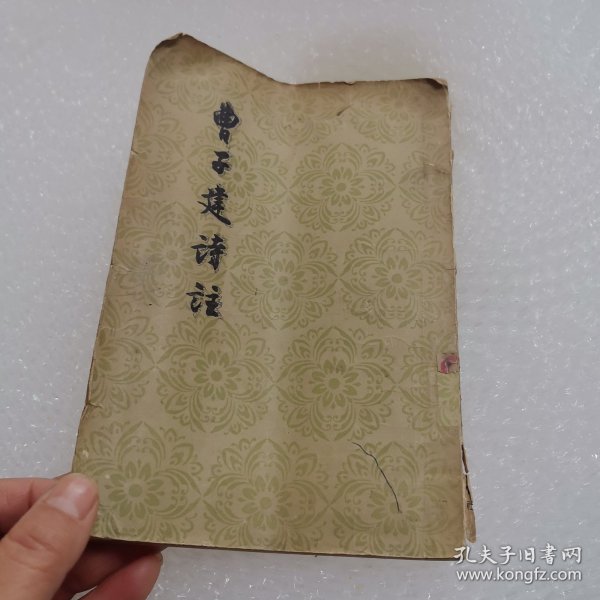 曹子建诗註
孔夫子旧书网
www.kongfz.com